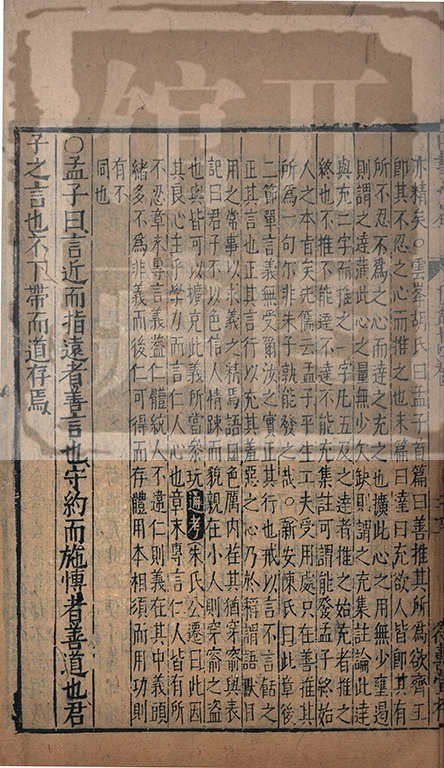 亦精矣○雲峯胡氏曰孟子首篇曰善推其所為欲齊王
即其不忍之心而推之也末篇曰達曰充欲人皆即其有
所不忍不為之心而達之充之也擴此心之用無少壅遏
則謂之達滿此心之量無少欠缺則謂之充集註論此達
與充二字而推之一字凡五及之達者推之始充者推之
終也不推不能達不達不能充集註可謂能發孟子終始
人之本旨矣先儒云孟子平生工夫受用處只在善推其
所為一句尔非朱子孰能發之哉○新安陳氏曰此章後
二節單言義無受爾汝之實正其行也戒以言不言餂之
正其言也正其言行以充其羞惡之心乃於稱謂語默日
用之常事以求義之精焉語曰色厲内荏其猶穿窬與表
記曰君子不以色信人情踈而貌親在小人則穿窬之盗
也與皆可以擴充此義所當參玩通考朱氏公遷曰此因
其良心生乎學力而言仁人心也章末專言仁人皆有所
不忍章末專言義蓋仁體統人不遠仁則義在其中義頭
緒多不為非義而後仁可得而存體用本相須而用功則
有不
同也
○孟子曰言近而指遠者善言也守約而施愽者善道也君
子之言也不下帶而道存焉